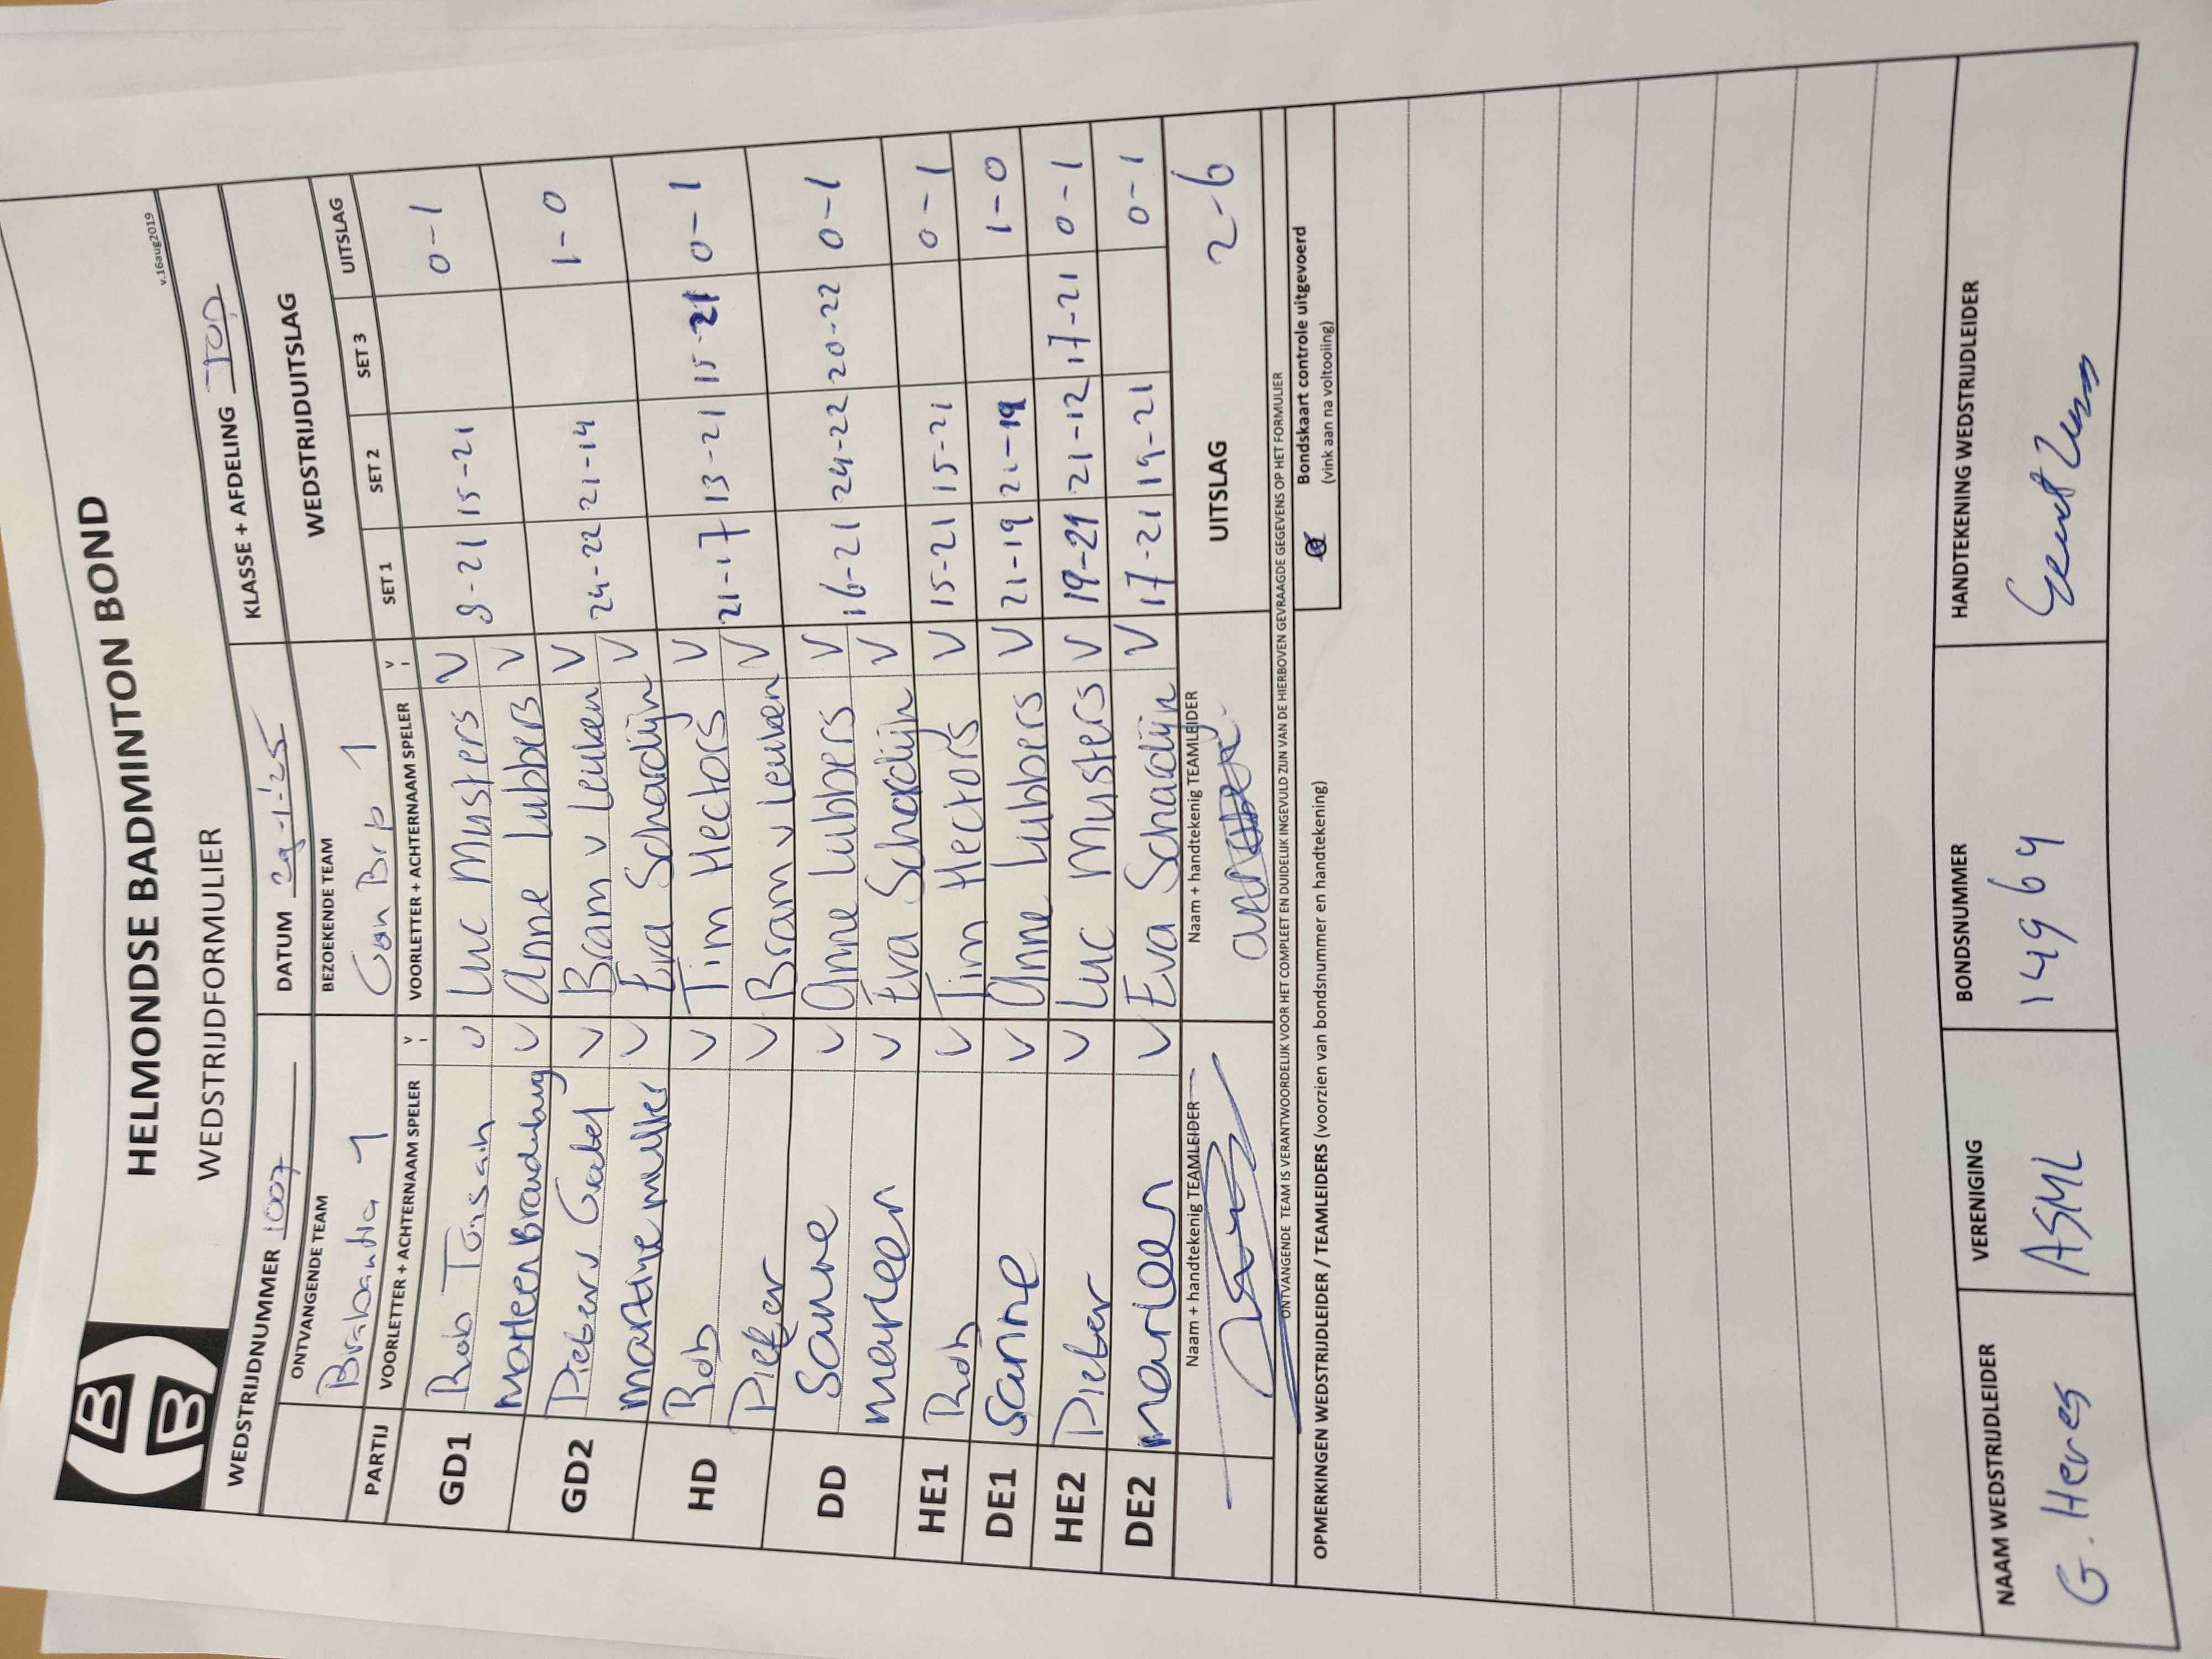 HELMONDSE BADMINTON BOND
v.16aug2019
WEDSTRIJDFORMULIER
WEDSTRIJDNUMMER 1007 DATUM 29-1-'25 KLASSE + AFDELING TOP
ONTVANGENDE TEAM BEZOEKENDE TEAM WEDSTRIJDUITSLAG
Brabantia 1 Con Brio 1
PARTIJ VOORLETTER + ACHTERNAAM SPELER V VOORLETTER + ACHTERNAAM SPELER V SET 1 SET 2 SET 3 UITSLAG
GD1 Rob V Luc Musters V 8-21 15-21 0-1
Marleen Brandenburg V Anne Lubbers V
GD2 Pieter V Bram v Leuken V 24-22 21-14 1-0
Martine Muller V Eva Schardijn V
HD Rob V Tim Hectors V 21-17 13-21 15-21 0-1
Pieter V Bram v Leuken V
DD Sanne V Anne Lubbers V 16-21 24-22 20-22 0-1
Marleen V Eva Schardijn V
HE1 Rob V Tim Hectors V 15-21 15-21 0-1
DE1 Sanne V Anne Lubbers V 21-19 21-19 1-0
HE2 Pieter V Luc Musters V 19-21 21-12 17-21 0-1
DE2 Marleen V Eva Schardijn V 17-21 19-21 0-1
Naam + handtekenig TEAMLEIDER Naam + handtekenig TEAMLEIDER UITSLAG 2-6
ONTVANGENDE TEAM IS VERANTWOORDELIJK VOOR HET COMPLEET EN DUIDELIJK INGEVULD ZIJN VAN DE HIERBOVEN GEVRAAGDE GEGEVENS OP HET FORMULIER
OPMERKINGEN WEDSTRIJDLEIDER / TEAMLEIDERS (voorzien van bondsnummer en handtekening)
Bondskaart controle uitgevoerd
(vink aan na voltooiing)
NAAM WEDSTRIJDLEIDER VERENIGING BONDSNUMMER HANDTEKENING WEDSTRIJDLEIDER
G. Heres ASML 14964